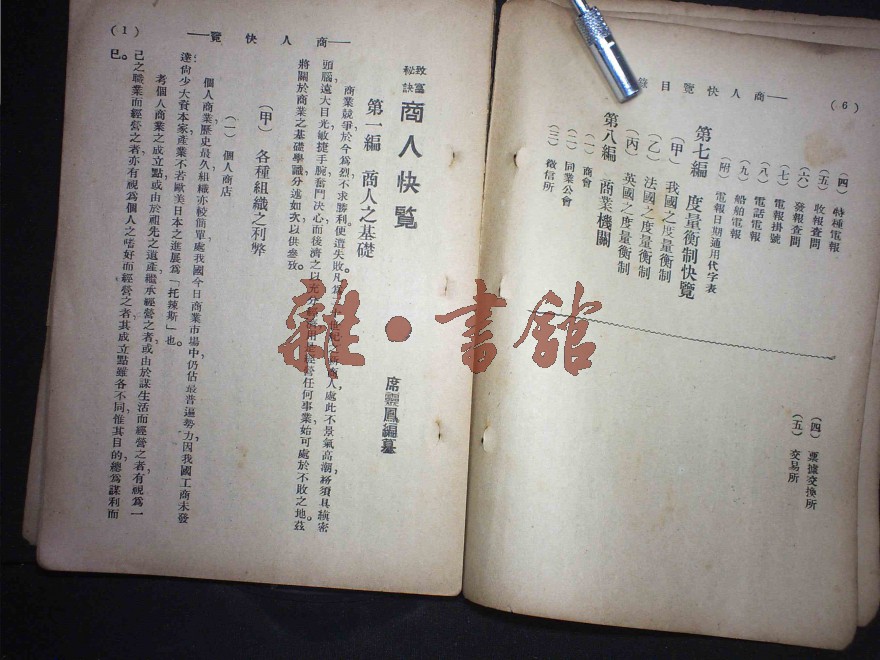 (6)
商人快覽目錄
(四) 特種電報
(五) 收報查問
(六) 發報查問
(七) 電報掛號
(八) 電話電報
(九) 船舶電報
(附) 電報日期通用代字表
第七編 度量衡制快覽
(甲) 我國之度量衡制
(乙) 法國之度量衡制
(丙) 英國之度量衡制
第八編 商業機關
(一) 商會
(二) 同業公會
(三) 徵信所
(四) 票據交換所
(五) 交易所
致富秘訣 商人快覽
席靈鳳編纂
第一編 商人之基礎
商業競爭於今爲烈,不求勝利,便遭失敗。凡爲二十世紀之商人,處此不景氣高潮,務須具縝密
頭腦,遠大目光,敏捷手腕,奮鬥決心,而後濟之以充分經營任何事業,始可處於不敗之地。茲
將關於商業之基礎學識,分述如次,以供參攷。
(甲) 各種組織之利弊
(一) 個人商店
個人商業,歷史最久,組織亦較簡單,處我國今日商業市場中,仍佔最普遍勢力,因我國工商未發
達,尙少大資本家,產業不若歐美日本之進展爲「托辣斯」也。
考個人商業之成立點,或由於祖先之遺產,繼承經營之者,或由於謀生活而經營之者,有視爲一
己之職業而經營之者,亦有視爲個人之嗜好而經營之者,其成立點雖各不同,惟其目的,總爲謀利而
已。
商人快覽
(1)
雜·書館